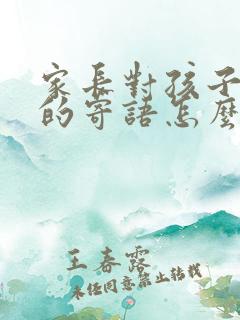 家長對孩子
的寄語怎麼
王春露
未經同意禁止轉載